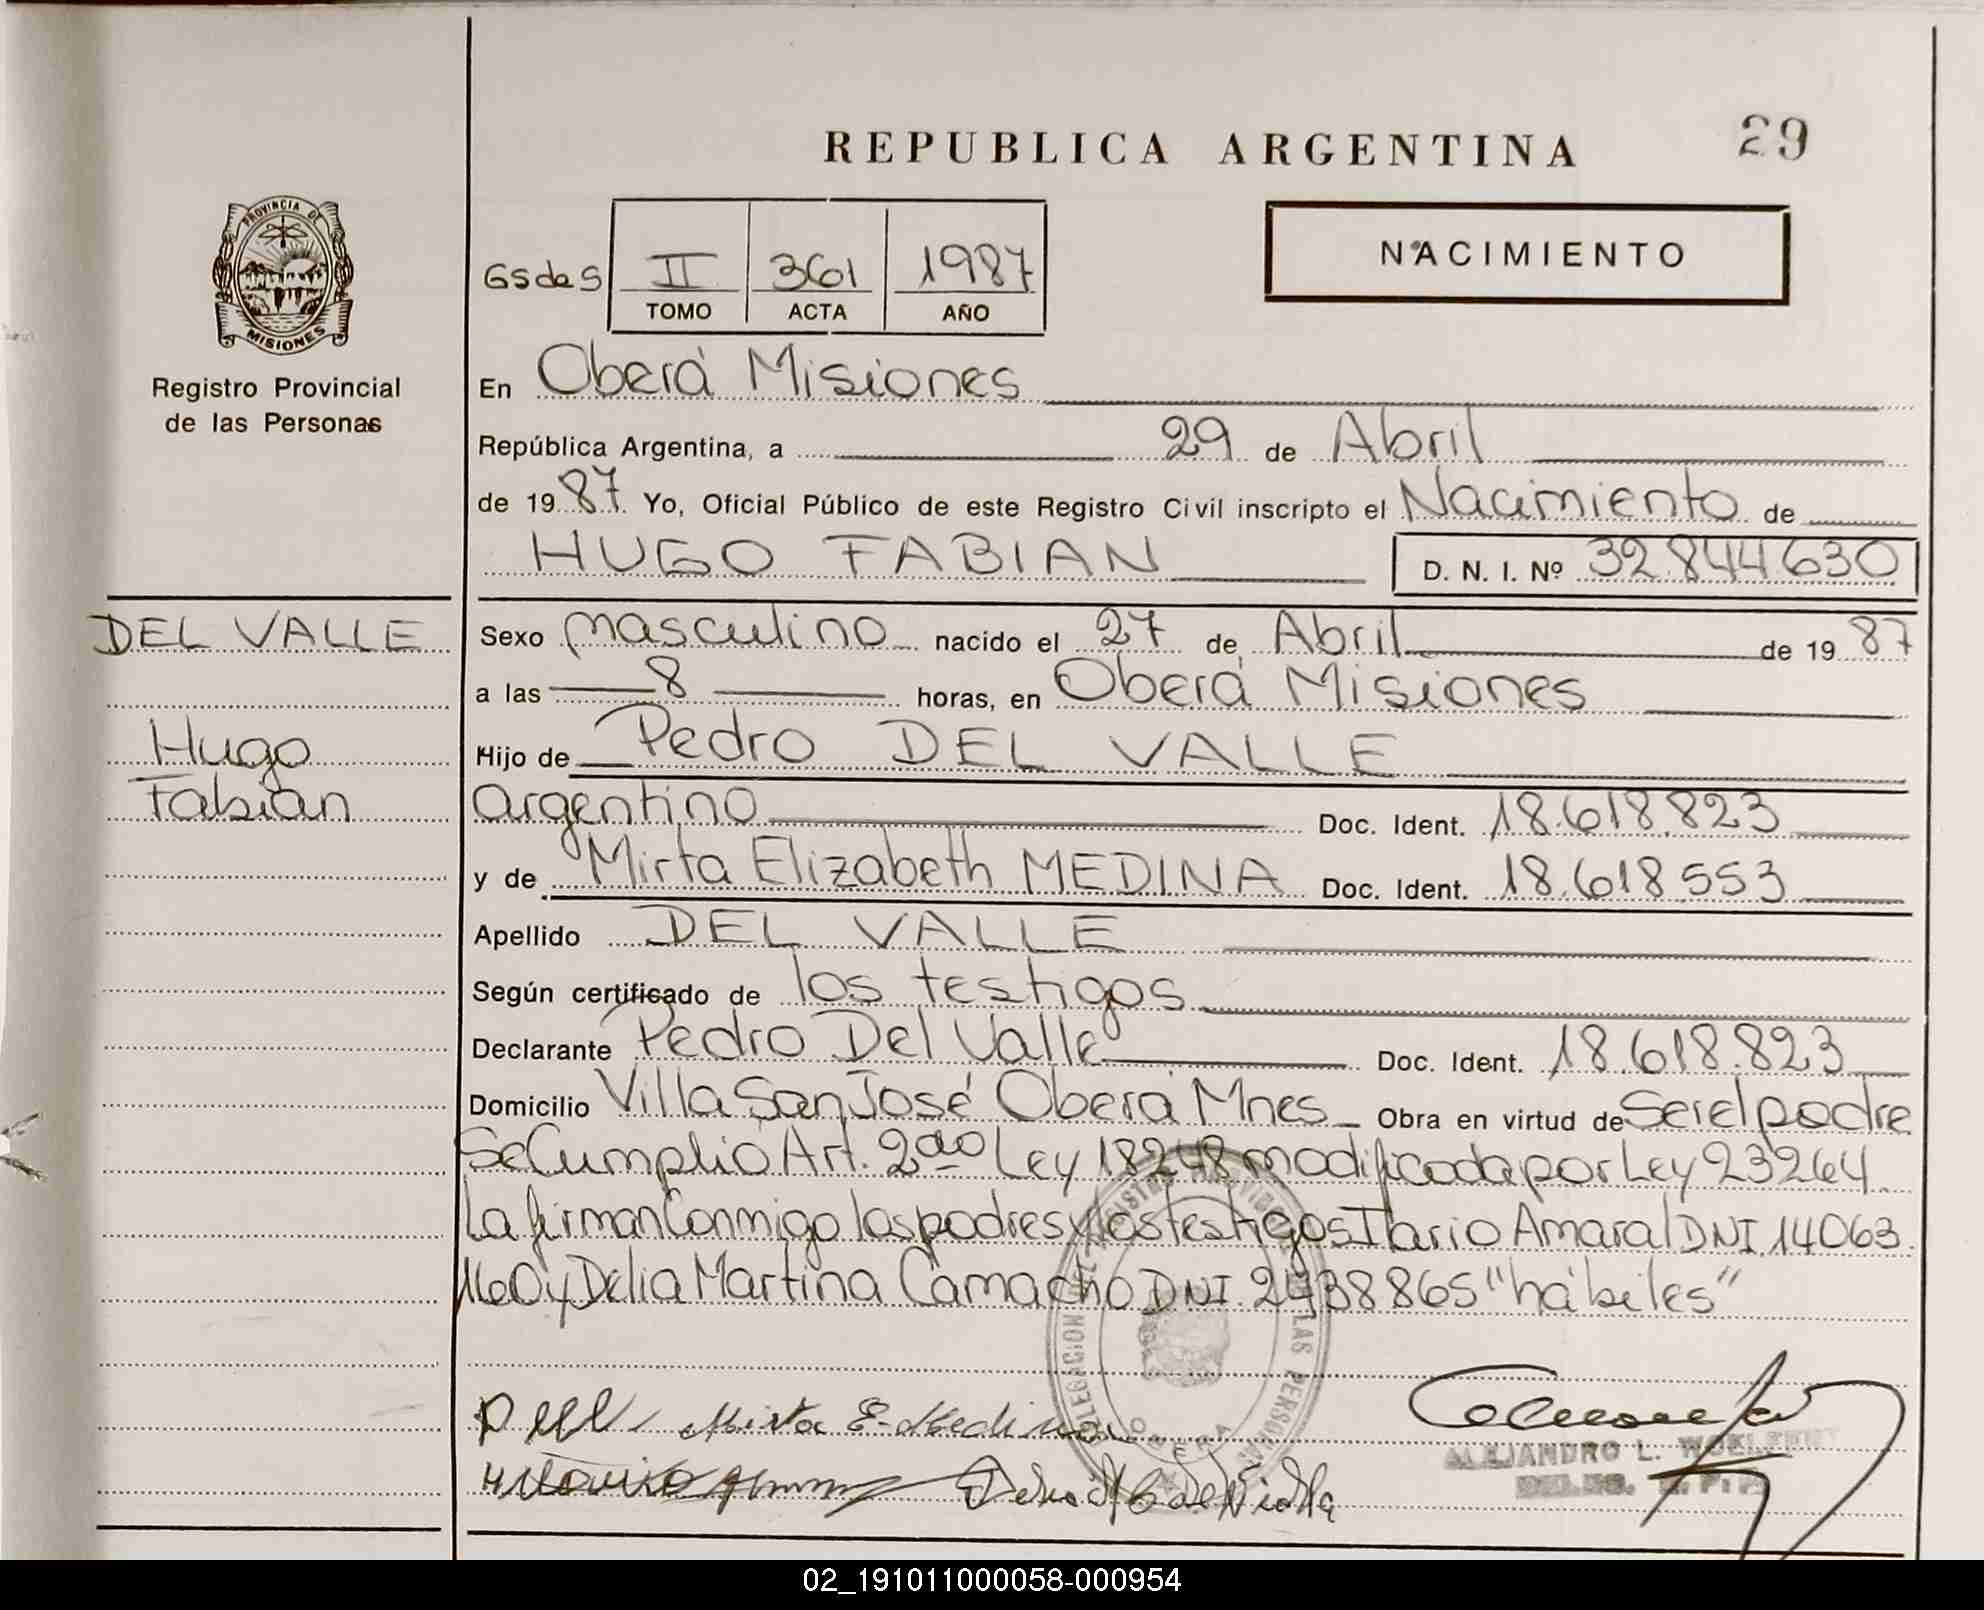 REPUBLICA ARGENTINA
29
PROVINCIA DE
MISIONES
Registro Provincial
de las Personas
II 361 1987
TOMO ACTA AÑO
NACIMIENTO
En Oberá Misiones
República Argentina, a 29 de Abril
de 1987 Yo, Oficial Público de este Registro Civil inscripto el Nacimiento de
HUGO FABIAN
D. N. I. Nº 32844630
DEL VALLE
Hugo
Fabian
Sexo masculino nacido el 27 de Abril de 1987
a las 8 horas, en Oberá Misiones
Hijo de Pedro DEL VALLE
argentino Doc. Ident. 18.618.823
y de Mirta Elizabeth MEDINA Doc. Ident. 18.618.553
Apellido DEL VALLE
Según certificado de los testigos
Declarante Pedro Del Valle Doc. Ident. 18.618.823
Domicilio Villa San José Oberá Mnes Obra en virtud de Ser el padre
Se Cumplio Art. 2do Ley 18248 modificada por Ley 23264
La firman Conmigo los padres y los testigos Ilario Amaral DNI 14063.
160 y Delia Martina Camacho DNI. 2438865 "hábiles"
Mirta E. Medina
OBERA
ALEJANDRO L.
02_191011000058-000954